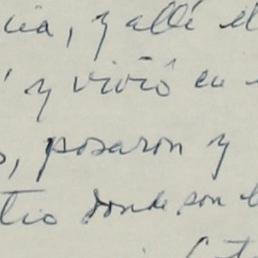 cia, y allí el
y vivió en
, posaron y
tio donde son